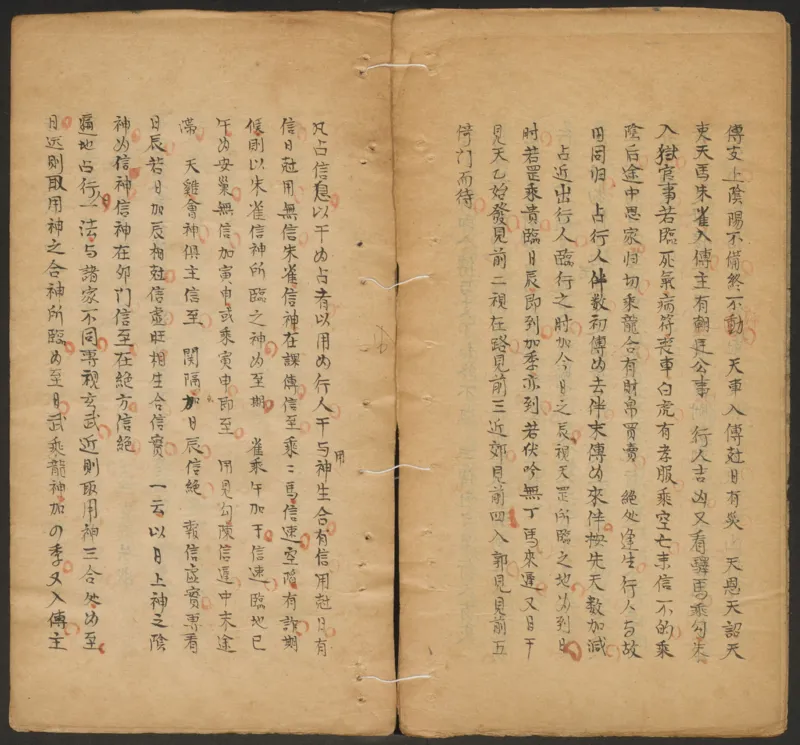 傳支上陰陽不備終不動 天車入傳尅日有災 天恩天詔天
吏天馬朱雀入傳主有朝廷公事 行人吉凶又看驛馬乘勾朱
入獄官事若臨死氣病符喪車白虎有孝服乘空亡耒信不的乘
陰后途中思家归切乘龍合有財帛買賣 絕处逢生行人与故
旧同归 占行人伴数初傳为去伴末傳为來伴按先天數加減
占近出行人臨行之时加今日之辰視天罡所臨之地为到日
时若罡乘貴臨日辰即到加季亦到若伏吟無丁馬來遲又日干
見天乙始發見前二視在路見前三近郊見前四入郭見見前五
倚门而待
凡占信息以干为占者以用为行人干与用神生合有信用尅日有
信日尅用無信朱雀信神在課傳信至乘二馬信速空陷有許期
候則以朱雀信神所臨之神为至期 雀乘午加干信速臨地巳
午为安巢無信加寅申或乘寅申即至 用見勾陳信遲中末途
滯 天雞會神俱主信至 関隔加日辰信絕 報信虛實專看
日辰若日加辰相尅信虛旺相生合信實 一云以日上神之陰
神为信神信神在卯门信至在絕方信絕
盜地占行一法与諸家不同專視玄武近則取用神三合处为至
日远則取用神之合神所臨为至日武乘龍神加の季又入傳主